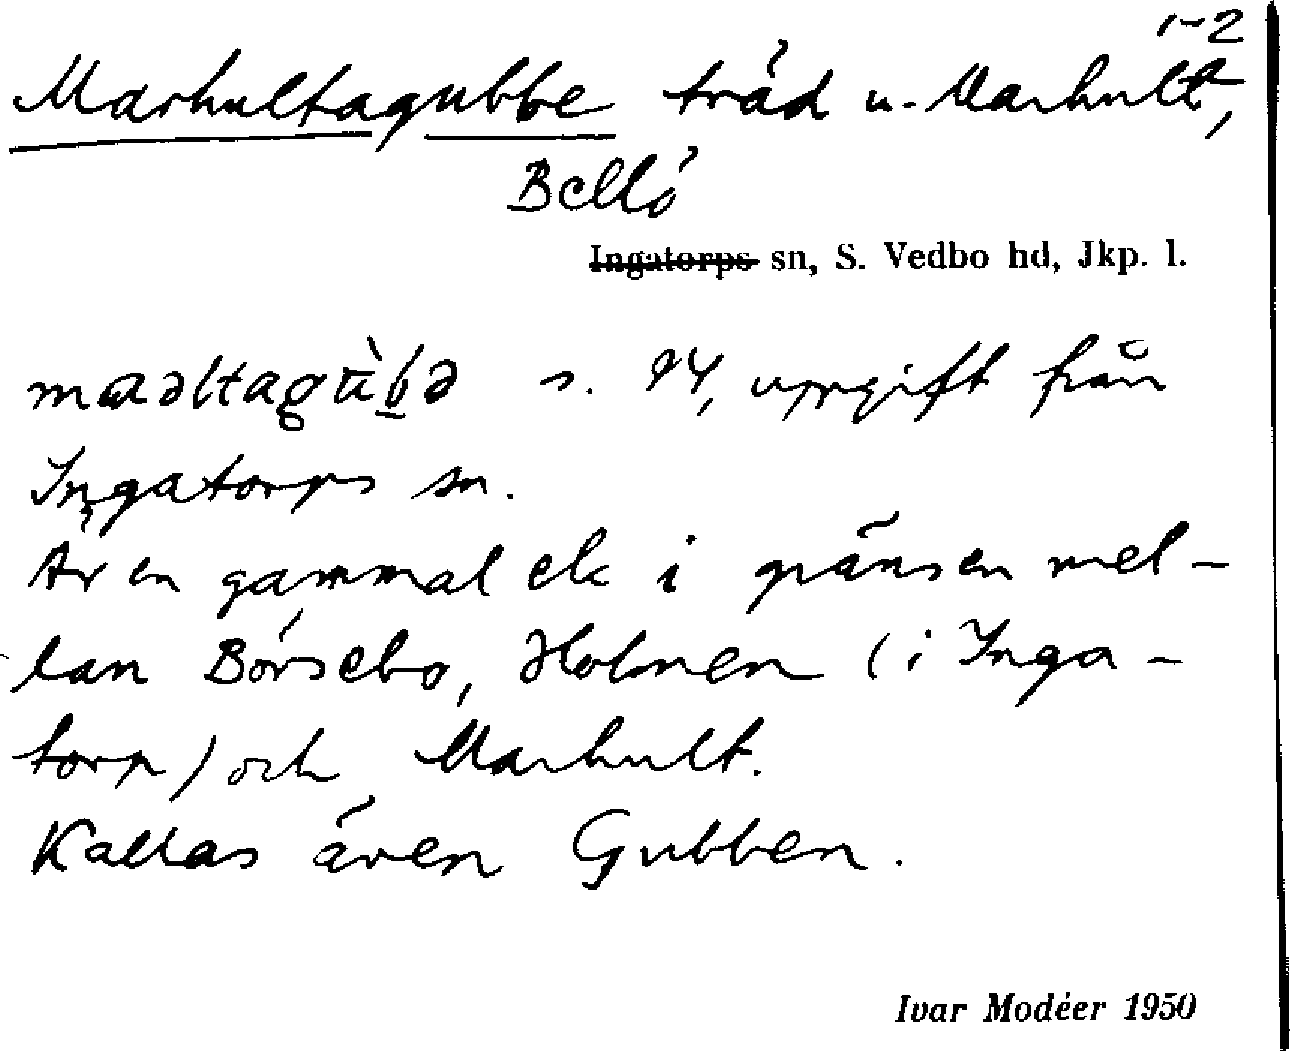 1-2
Marhultagubbe träd u. Marhult,
Bellö
Ingatorps sn, S. Vedbo hd, Jkp. l.
s. 94, uppgift från
Ingatorps sn.
Är en gammal ek i gränsen mel-
lan Börsebo, Holmen (i Inga-
torp) och Marhult.
Kallas även Gubben.
Ivar Modéer 1950